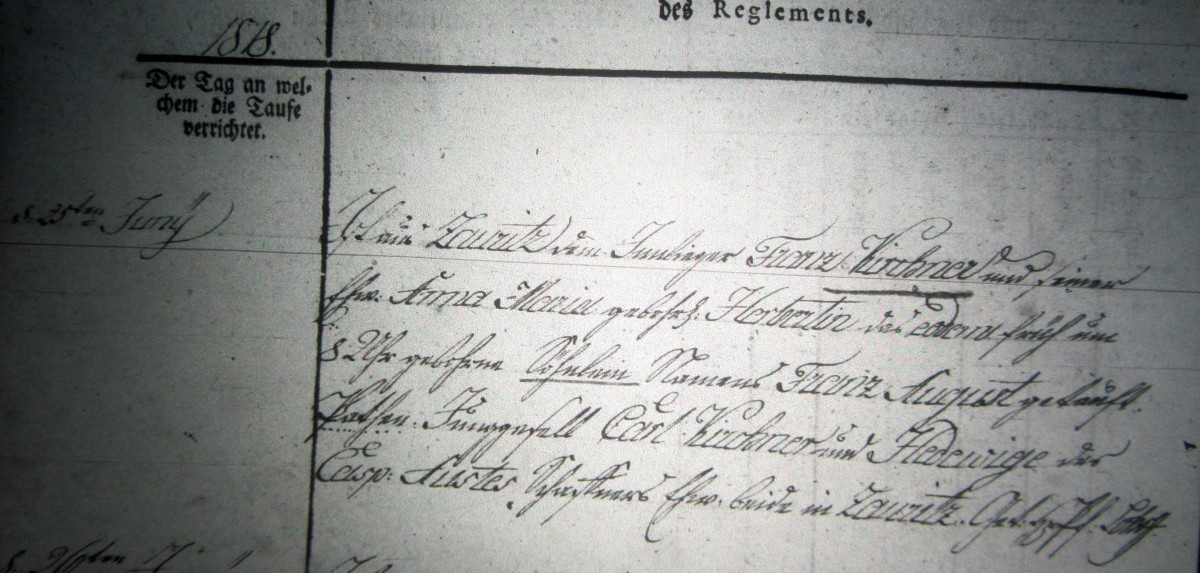 des Reglements.
1818.
Der Tag an wel-
chem die Taufe
verrichtet.
d. 25ten Juny
Ist aus Lauritz dem Innlieger Franz Kirchner und seiner
Ehw: Anna Maria gebohr: Herbertin das eodem früh um
8 Uhr gebohrne Söhnlein Namens Franz August getauft.
Pathen: Junggesell Carl Kirchner und Hedewige des
Casp: Schaffners Ehw: beide in Lauritz.
d. 26ten